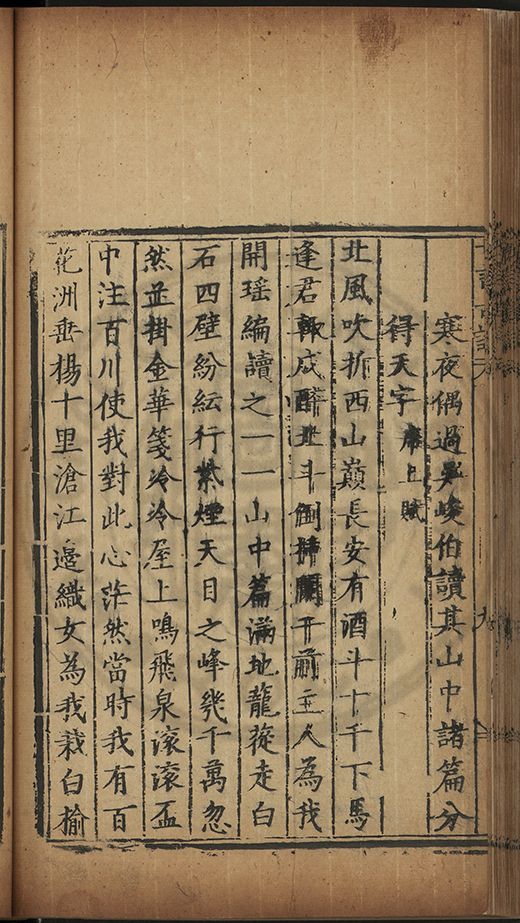 寒夜偶過吳峻伯讀其山中諸篇分
得天字 席上賦
北風吹折西山巔長安有酒斗十千下馬
逢君輒成醉北斗倒掛闌干前主人為我
開瑤編讀之一一山中篇滿地龍蓯走白
石四壁紛紜行紫煙天目之峰幾千萬忽
然並掛金華箋泠泠屋上鳴飛泉滾滾盃
中注百川使我對此心茫然當時我有百
花洲垂楊十里滄江邊織女為我栽白榆